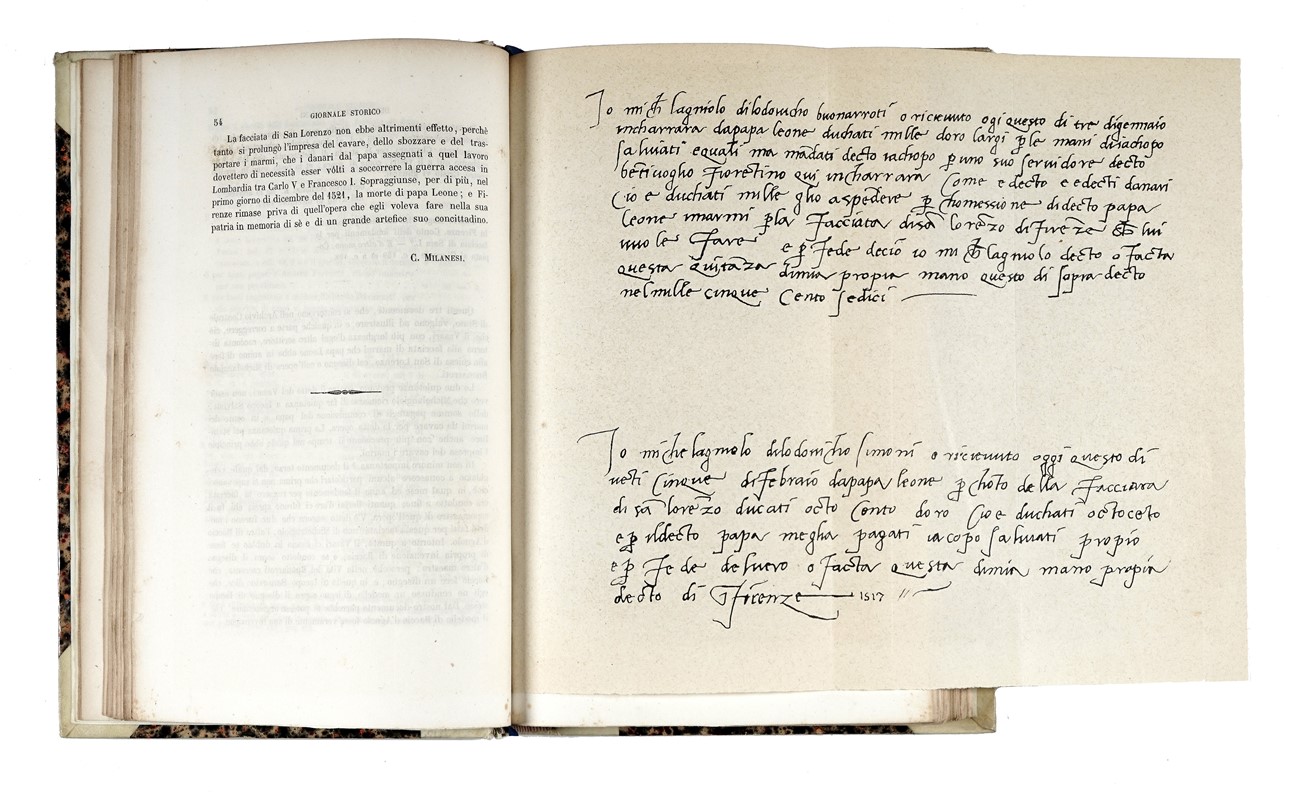 54
GIORNALE STORICO
La facciata di San Lorenzo non ebbe altrimenti effetto, perchè
tanto si prolungò l'impresa del cavare, dello sbozzare e del tras-
portare i marmi, che i danari dal papa assegnati a quel lavoro
dovettero di necessità esser vòlti a soccorrere la guerra accesa in
Lombardia tra Carlo V e Francesco I. Sopraggiunse, per di più, nel
primo giorno di dicembre del 1521, la morte di papa Leone; e Fi-
renze rimase priva di quell'opera che egli voleva fare nella sua
patria in memoria di sè e di un grande artefice suo concittadino.
C. MILANESI.
Io michelagniolo dilodovicho buonarroti o ricievuto ogi questo di tre digennaio
incharrara dapapa leone duchati mille doro largi p le mani diiachopo
salviati equali ma mādati decto iachopo p uno suo servidore decto
bētivoglio fiorentino qui incharrara Come e decto e edecti danari
Cio e duchati mille gli o aspēdere p chomessione didecto papa
leone inarmi p la facciata disā lorēzo di firēze ch lui
vuole fare e p fede decio io michelagniolo decto o facta
questa quitāza dimia propia mano questo di sopra decto
nelmille cinque Cento sedici
Io michelagniolo dilodovicho simoni o ricievuto oggi questo di
vēti cinque di febraio dapapa leone p chōto della facciata
di sā lorēzo ducati octo Cento doro Cio e duchati octocēto
e p ildecto papa megha pagati iacopo salviati propio
e p fede delvero o facta questa dimia mano propia
decto di firenze 1517